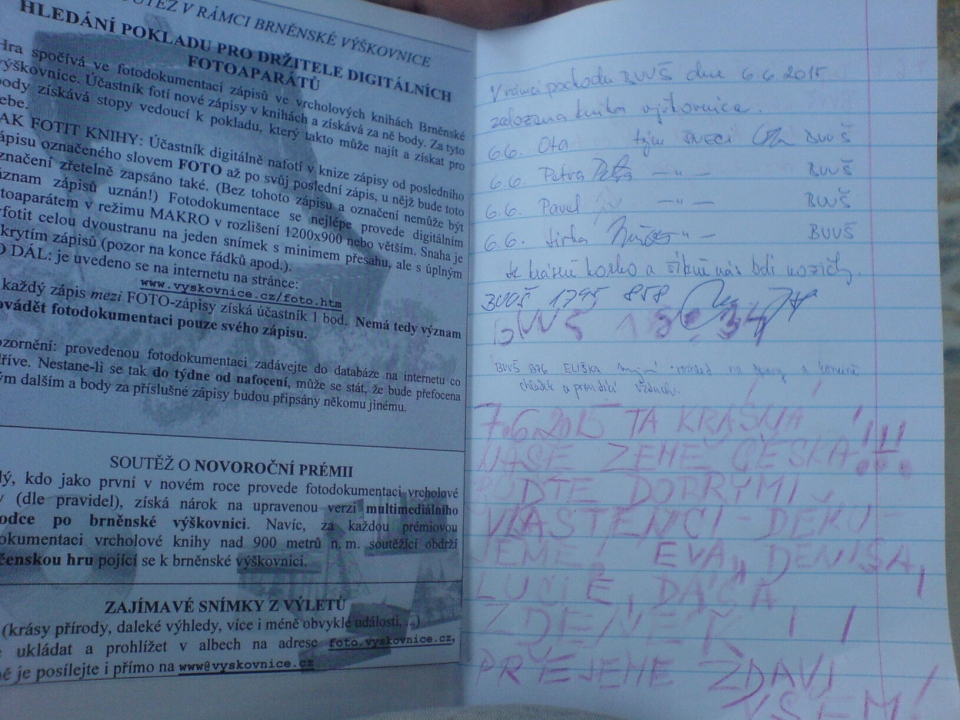 OUTĚŽ V RÁMCI BRNĚNSKÉ VÝŠKOVNICE
HLEDÁNÍ POKLADU PRO DRŽITELE DIGITÁLNÍCH
FOTOAPARÁTŮ
Hra spočívá ve fotodokumentaci zápisů ve vrcholových knihách Brněnské
výškovnice. Účastník fotí nové zápisy v knihách a získává za ně body. Za tyto
body získává stopy vedoucí k pokladu, který takto může najít a získat pro
sebe.
JAK FOTIT KNIHY: Účastník digitálně nafotí v knize zápisy od posledního
zápisu označeného slovem FOTO až po svůj poslední zápis, u nějž bude toto
označení zřetelně zapsáno také. (Bez tohoto zápisu a označení nemůže být
záznam zápisů uznán!) Fotodokumentace se nejlépe provede digitálním
fotoaparátem v režimu MAKRO v rozlišení 1200x900 nebo větším. Snaha je
fotit celou dvoustranu na jeden snímek s minimem přesahu, ale s úplným
krytím zápisů (pozor na konce řádků apod.).
O DÁL: je uvedeno se na internetu na stránce:
www.vyskovnice.cz/foto.htm
každý zápis mezi FOTO-zápisy získá účastník 1 bod. Nemá tedy význam
ovádět fotodokumentaci pouze svého zápisu.
ozornění: provedenou fotodokumentaci zadávejte do databáze na internetu co
dříve. Nestane-li se tak do týdne od nafocení, může se stát, že bude přefocena
ým dalším a body za příslušné zápisy budou připsány někomu jinému.
SOUTĚŽ O NOVOROČNÍ PRÉMII
dý, kdo jako první v novém roce provede fotodokumentaci vrcholové
y (dle pravidel), získá nárok na upravenou verzi multimediálního
odce po brněnské výškovnici. Navíc, za každou prémiovou
okumentaci vrcholové knihy nad 900 metrů n. m. soutěžící obdrží
čenskou hru pojící se k brněnské výškovnici.
ZAJÍMAVÉ SNÍMKY Z VÝLETŮ
(krásy přírody, daleké výhledy, více i méně obvyklé události, ...)
e ukládat a prohlížet v albech na adrese foto.vyskovnice.cz,
ně je posílejte i přímo na www@vyskovnice.cz
V rámci pochodu BVVŠ dne 6.6.2015
založena kniha výškovnice.
6.6. Ota tým BVVŠ
6.6. Petra — " — BVVŠ
6.6. Pavel — " — BVVŠ
6.6. Jirka — " — BVVŠ
Je krásné horko a
BVVŠ 1795 858
BVVŠ
BVVŠ 876 ELIŠKA
7.6.2015 TA KRÁSNÁ !
NAŠE ZEMĚ ČESKÁ!!!
BUĎTE DOBRÝMI
VLASTENCI - DĚKU-
JEME! EVA, DENISA,
LUCIE, DÁČA
ZDENĚK !!
PŘEJEME ZDAVÍ
VŠEM!